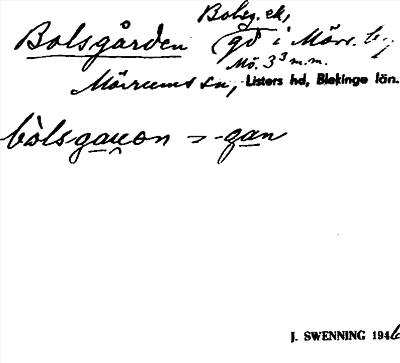 Bolsg. ek,
Bolsgården gd i Mörr. by
Mö. 3³ m.m.
Mörrums sn, Listers hd, Blekinge län.
bòlsgau̯ən -gan
J. SWENNING 1946